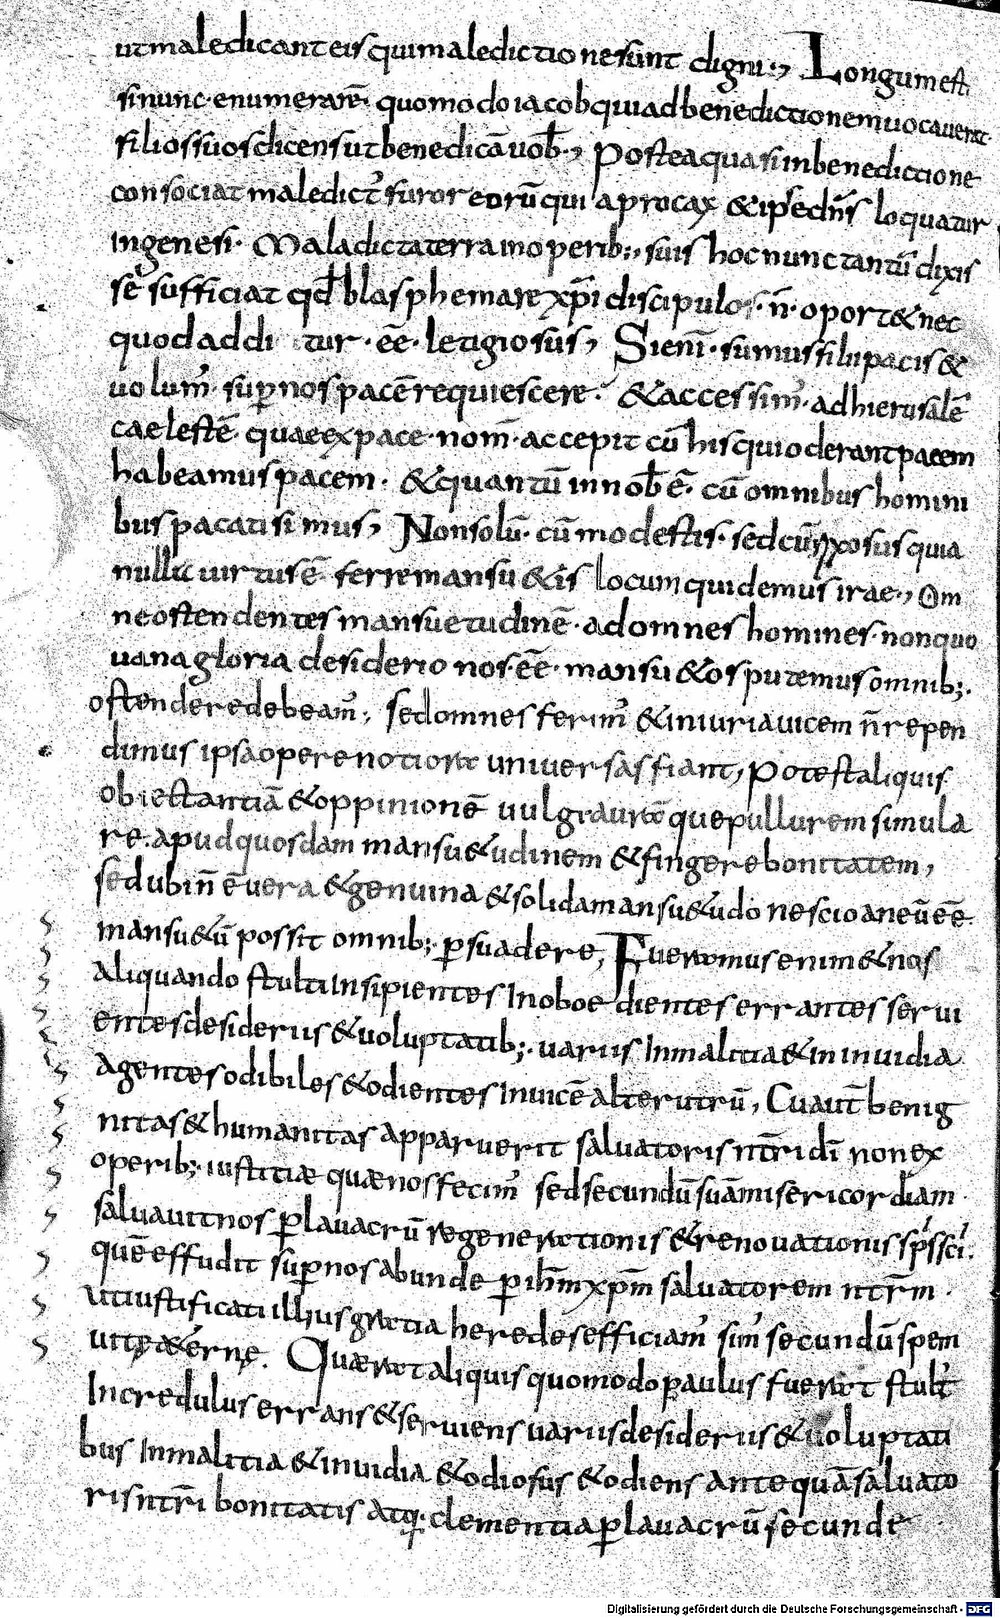 ut maledicant eis qui maledictione sunt digni·, Longum est
si nunc·enumerarē· quomodo iacob qui ad benedictionem uocauerat
filios suos dicens ut benedicā uob̄·, Postea quasi in benedictione
consociat maledict' furor eorū quia procax & ipse dn̄s loquatur
in genesi· Maladicta terra in operib;, suis hoc nunc tantū dixis
sē sufficiat qd̄ blasphemare xp̄i discipulos· n̄· oport& nec
quod addi tur· eē· letigiosus, Si enī· sumus filii pacis &
uolum'· sup̄ nos pacē requiescere· & accessim'· ad hierusalē
caelestē· quae ex pace· nom̄· accepit cū his qui oderant pacem
habeamus pacem· & quantū in nob̄ ē· cū omnibus homini
bus pacati simus, Non solū· cū modestis· sed cū rixosis quia
nulla uirtus ē· ferre mansu&is Locum qui demus irae·, Om
ne ostendentes mansuetudinē· ad omnes homines· non quo
uana gloria desiderio nos·eē· mansu&os putemus omnib;·
ostendere debeam'·, sed omnes ferim' & iniuria uicem n̄ repen
dimus ipsa opere notiora uniuersas fiant, Potest aliquis
ob iectantiā & oppinionē uulgi auramque pullurem simula
re· apud quosdam mansu&udinem & fingere bonitatem,
sed ubi n̄ ē uera & genuina & solida mansu&udo nescio an eū eē
mansu&ū possit omnib;· p̄suadere, Fueramus enim & nos
aliquando stulti Insipientes Inoboedientes errantes serui
entes desideriis & uoluptatib;· uariis In malitia & in inuidia
agentes odibiles & odientes Inuicē alterutrū, Cū aut̄ benig
nitas & humanitas apparuerit saluatoris nr̄i dī non ex
operib;· iustitiæ quæ nos fecim' sed secundū suā misericordiam·
saluauit nos p̄ lauacrū regenerationis & renouationis sp̄s sc̄i·
quē effudit sup̄ nos abunde p̄ ih̄m xp̄m saluatorem nr̄m·
ut iustificati illius gratia heredes efficiam' sim' secundū spem
uitę &ernę. Quærat aliquis quomodo paulus fuerat stult'
Incredulus errans & seruiens uariis desideriis & uoluptati
bus In malitia & inuidia & odiosus & odiens ante quā saluato
ris nr̄i bonitatis atq;· clementia p̄ lauacrū secunde
Digitalisierung gefördert durch die Deutsche Forschungsgemeinschaft - DFG